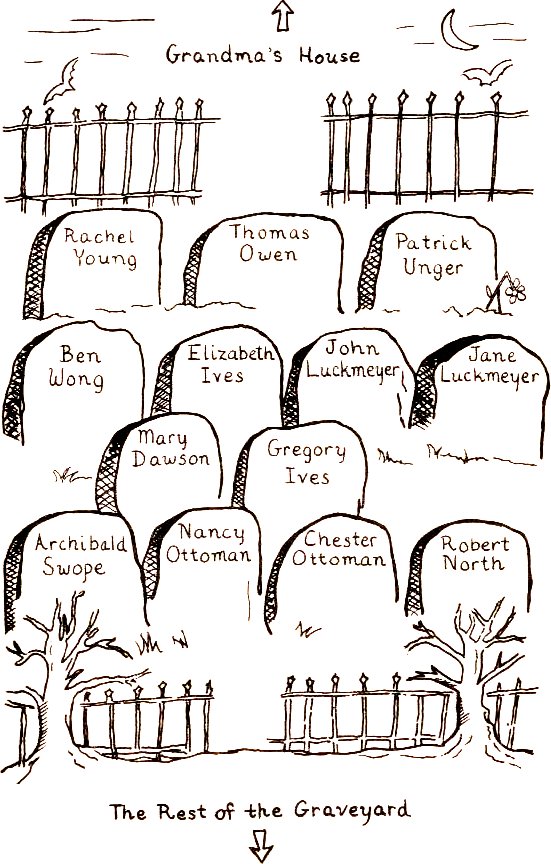 Grandma's House
Rachel
Young
Thomas
Owen
Patrick
Unger
Ben
Wong
Elizabeth
Ives
John
Luckmeyer
Jane
Luckmeyer
Mary
Dawson
Gregory
Ives
Archibald
Swope
Nancy
Ottoman
Chester
Ottoman
Robert
North
The Rest of the Graveyard